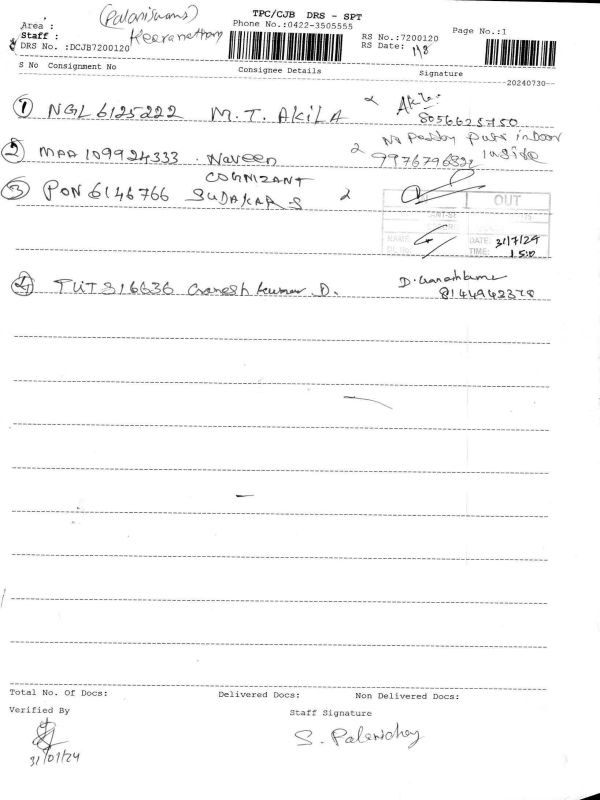 TPC/CJB DRS - SPT
Area : (Palaniswami)
Phone No.:0422-3505555
Page No.:1
Staff : Keeranattam
RS No.:7200120
DRS No. :DCJB7200120
RS Date: 1/8
S No Consignment No Consignee Details Signature
20240730
1 NGL 6125222 M.T. AKILA
8056625750
2 MAA 109924333 Naveen
9976796322 inside
COGNIZANT
3 PON 6146766 SUDAKAR S
OUT
NAME
DATE: 31/7/24
TIME:
4 TUT 316636 Ganesh kumar D.
D. Ganeshkumar
8144942378
Total No. Of Docs: Delivered Docs: Non Delivered Docs:
Verified By Staff Signature
31/07/24
S. Palanichay